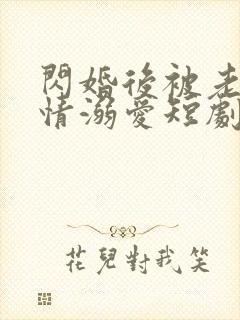 閃婚後被老
情溺愛短劇
花兒對我笑